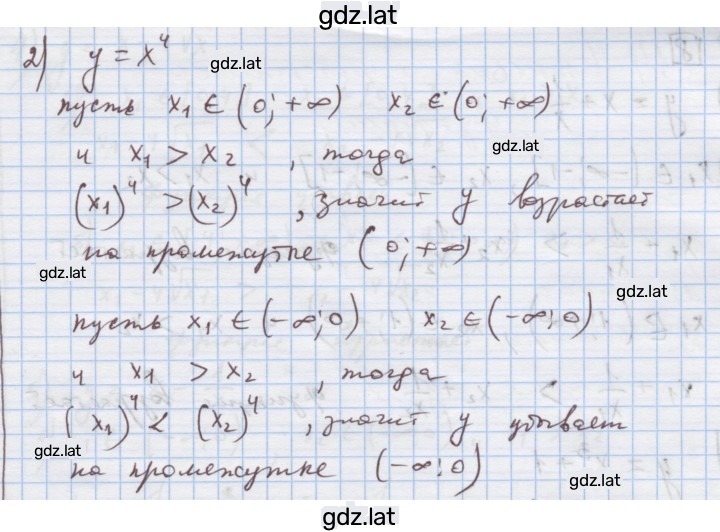 gdz.lat
2) y = x⁴
gdz.lat
пусть x₁ ∈ (0; +∞) x₂ ∈ (0; +∞)
и x₁ > x₂ , тогда
gdz.lat
(x₁)⁴ > (x₂)⁴ , значит y возрастает
на промежутке (0; +∞)
gdz.lat
gdz.lat
пусть x₁ ∈ (-∞; 0) x₂ ∈ (-∞; 0)
и x₁ > x₂ , тогда
(x₁)⁴ < (x₂)⁴ , значит y убывает
gdz.lat
на промежутке (-∞; 0)
gdz.lat
gdz.lat